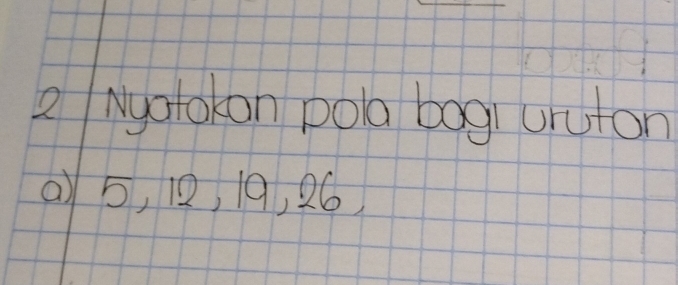 2 Nyatakan pola bagi urutan
a) 5, 12, 19, 26,